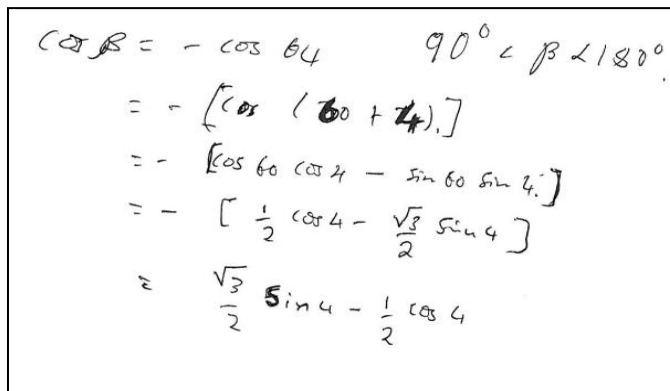 cos β = - cos 64 90° < β < 180°.
= - [cos (60 + 4).]
= - [cos 60 cos 4 - sin 60 sin 4.]
= - [ 1/2 cos 4 - √3/2 sin 4 ]
= √3/2 sin 4 - 1/2 cos 4